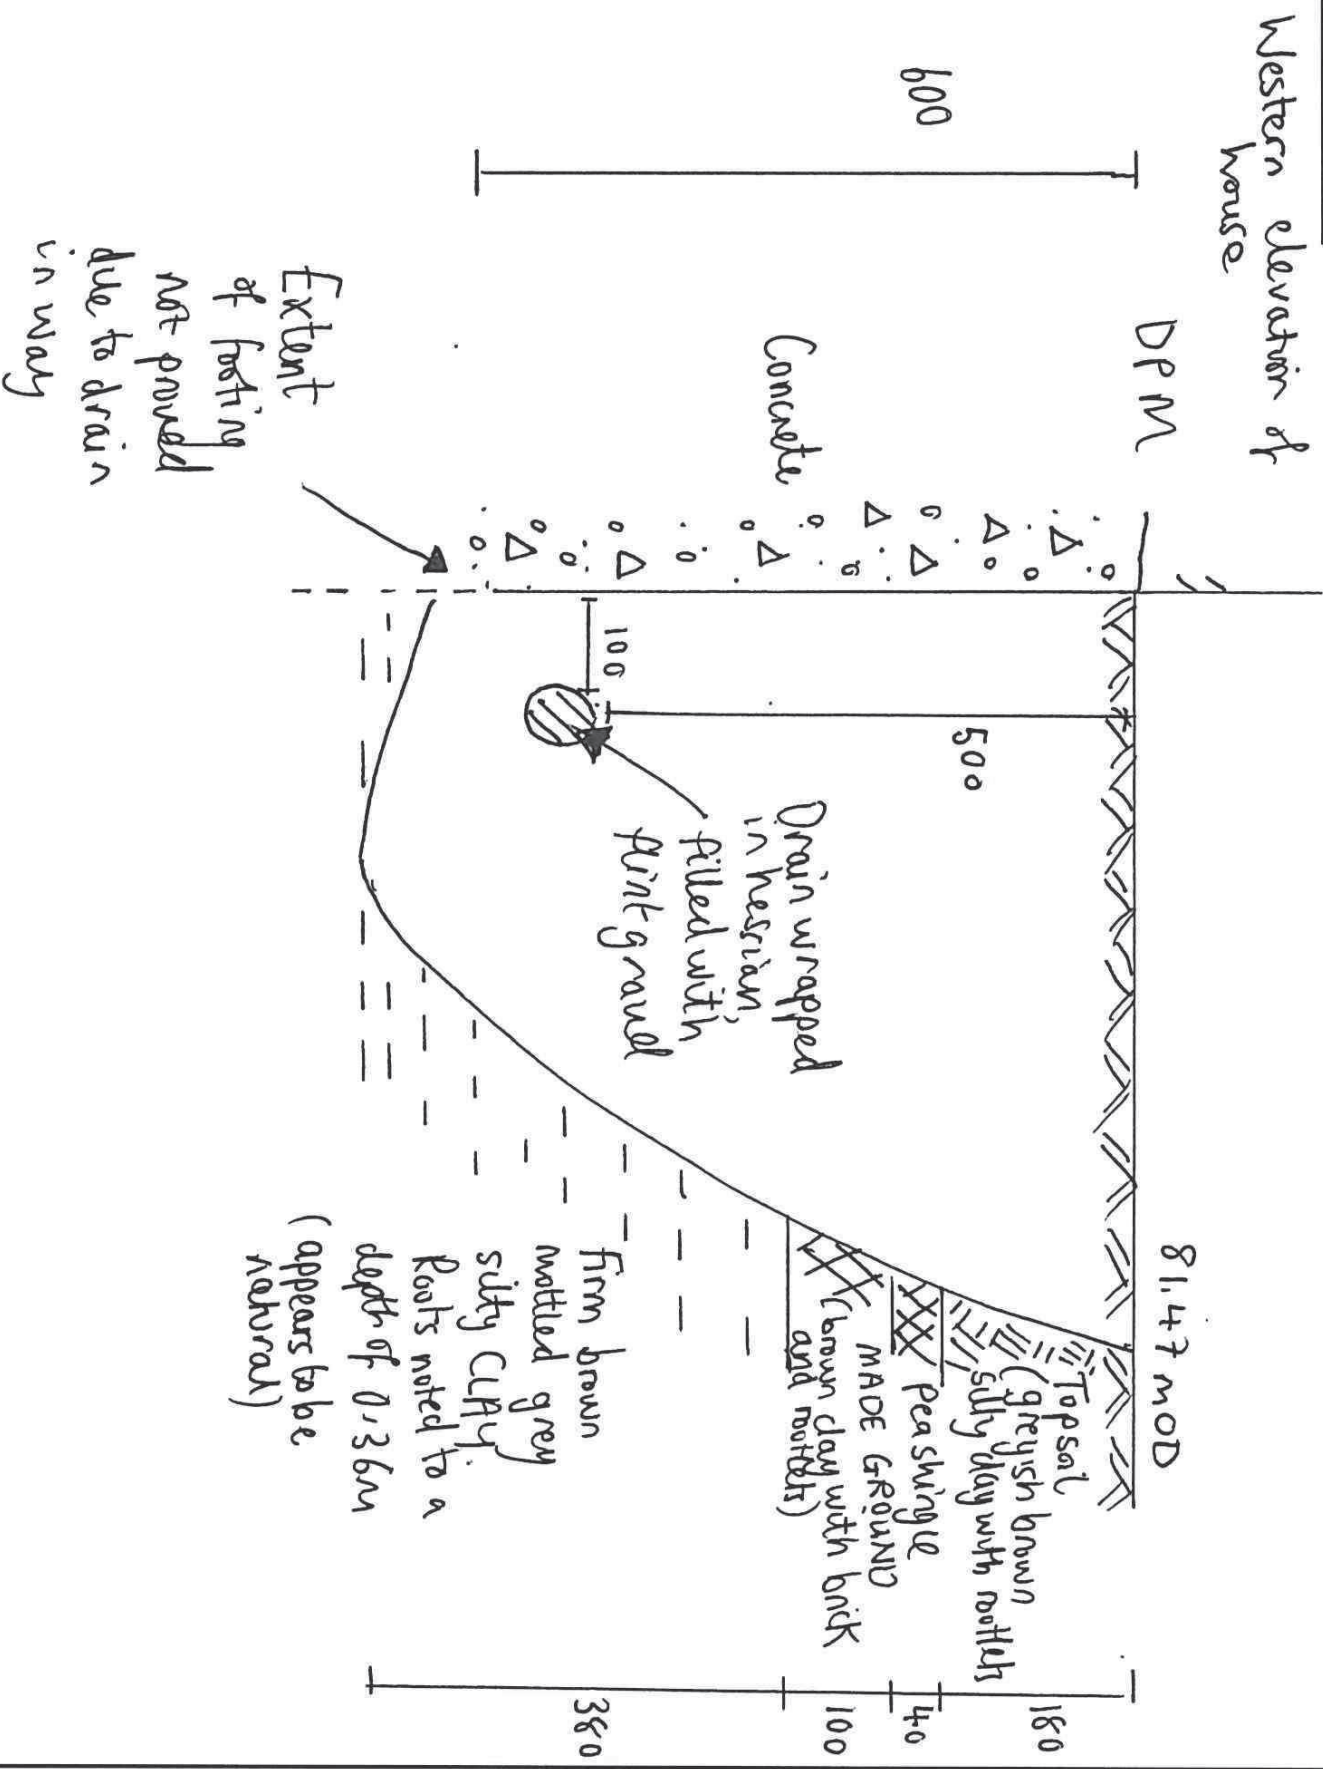 Western elevation of
house
600
DPM
Concrete
Extent
of footing
not proved
due to drain
in way
100
500
Drain wrapped
in hessian,
filled with
flint gravel
81.47 mOD
Topsoil
(greyish brown
silty clay with rootlets
Pea shingle
MADE GROUND
(brown clay with brick
and rootlets)
firm brown
mottled grey
silty CLAY
Roots noted to a
depth of 0.36m
(appears to be
natural)
180
40
100
380